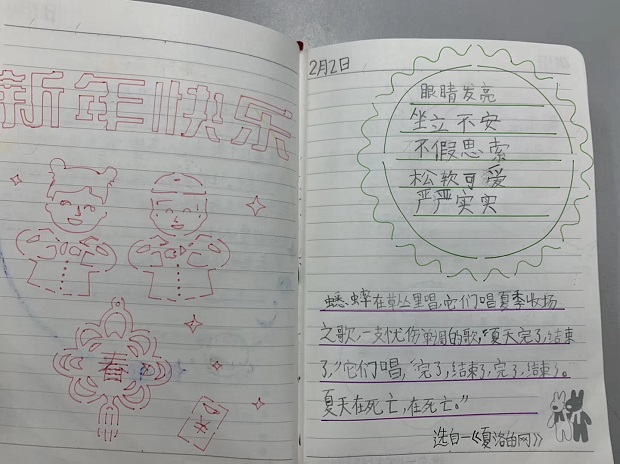 新年快乐
春
2月2日
眼睛发亮
坐立不安
不假思索
松软可爱
严严实实
蟋蟀在草丛里唱,它们唱夏季收场
之歌,一支忧伤单调的歌,“夏天完了,结束
了,”它们唱,“完了,结束了,完了,结束了。
夏天在死亡,在死亡。”
选自—《夏洛的网》